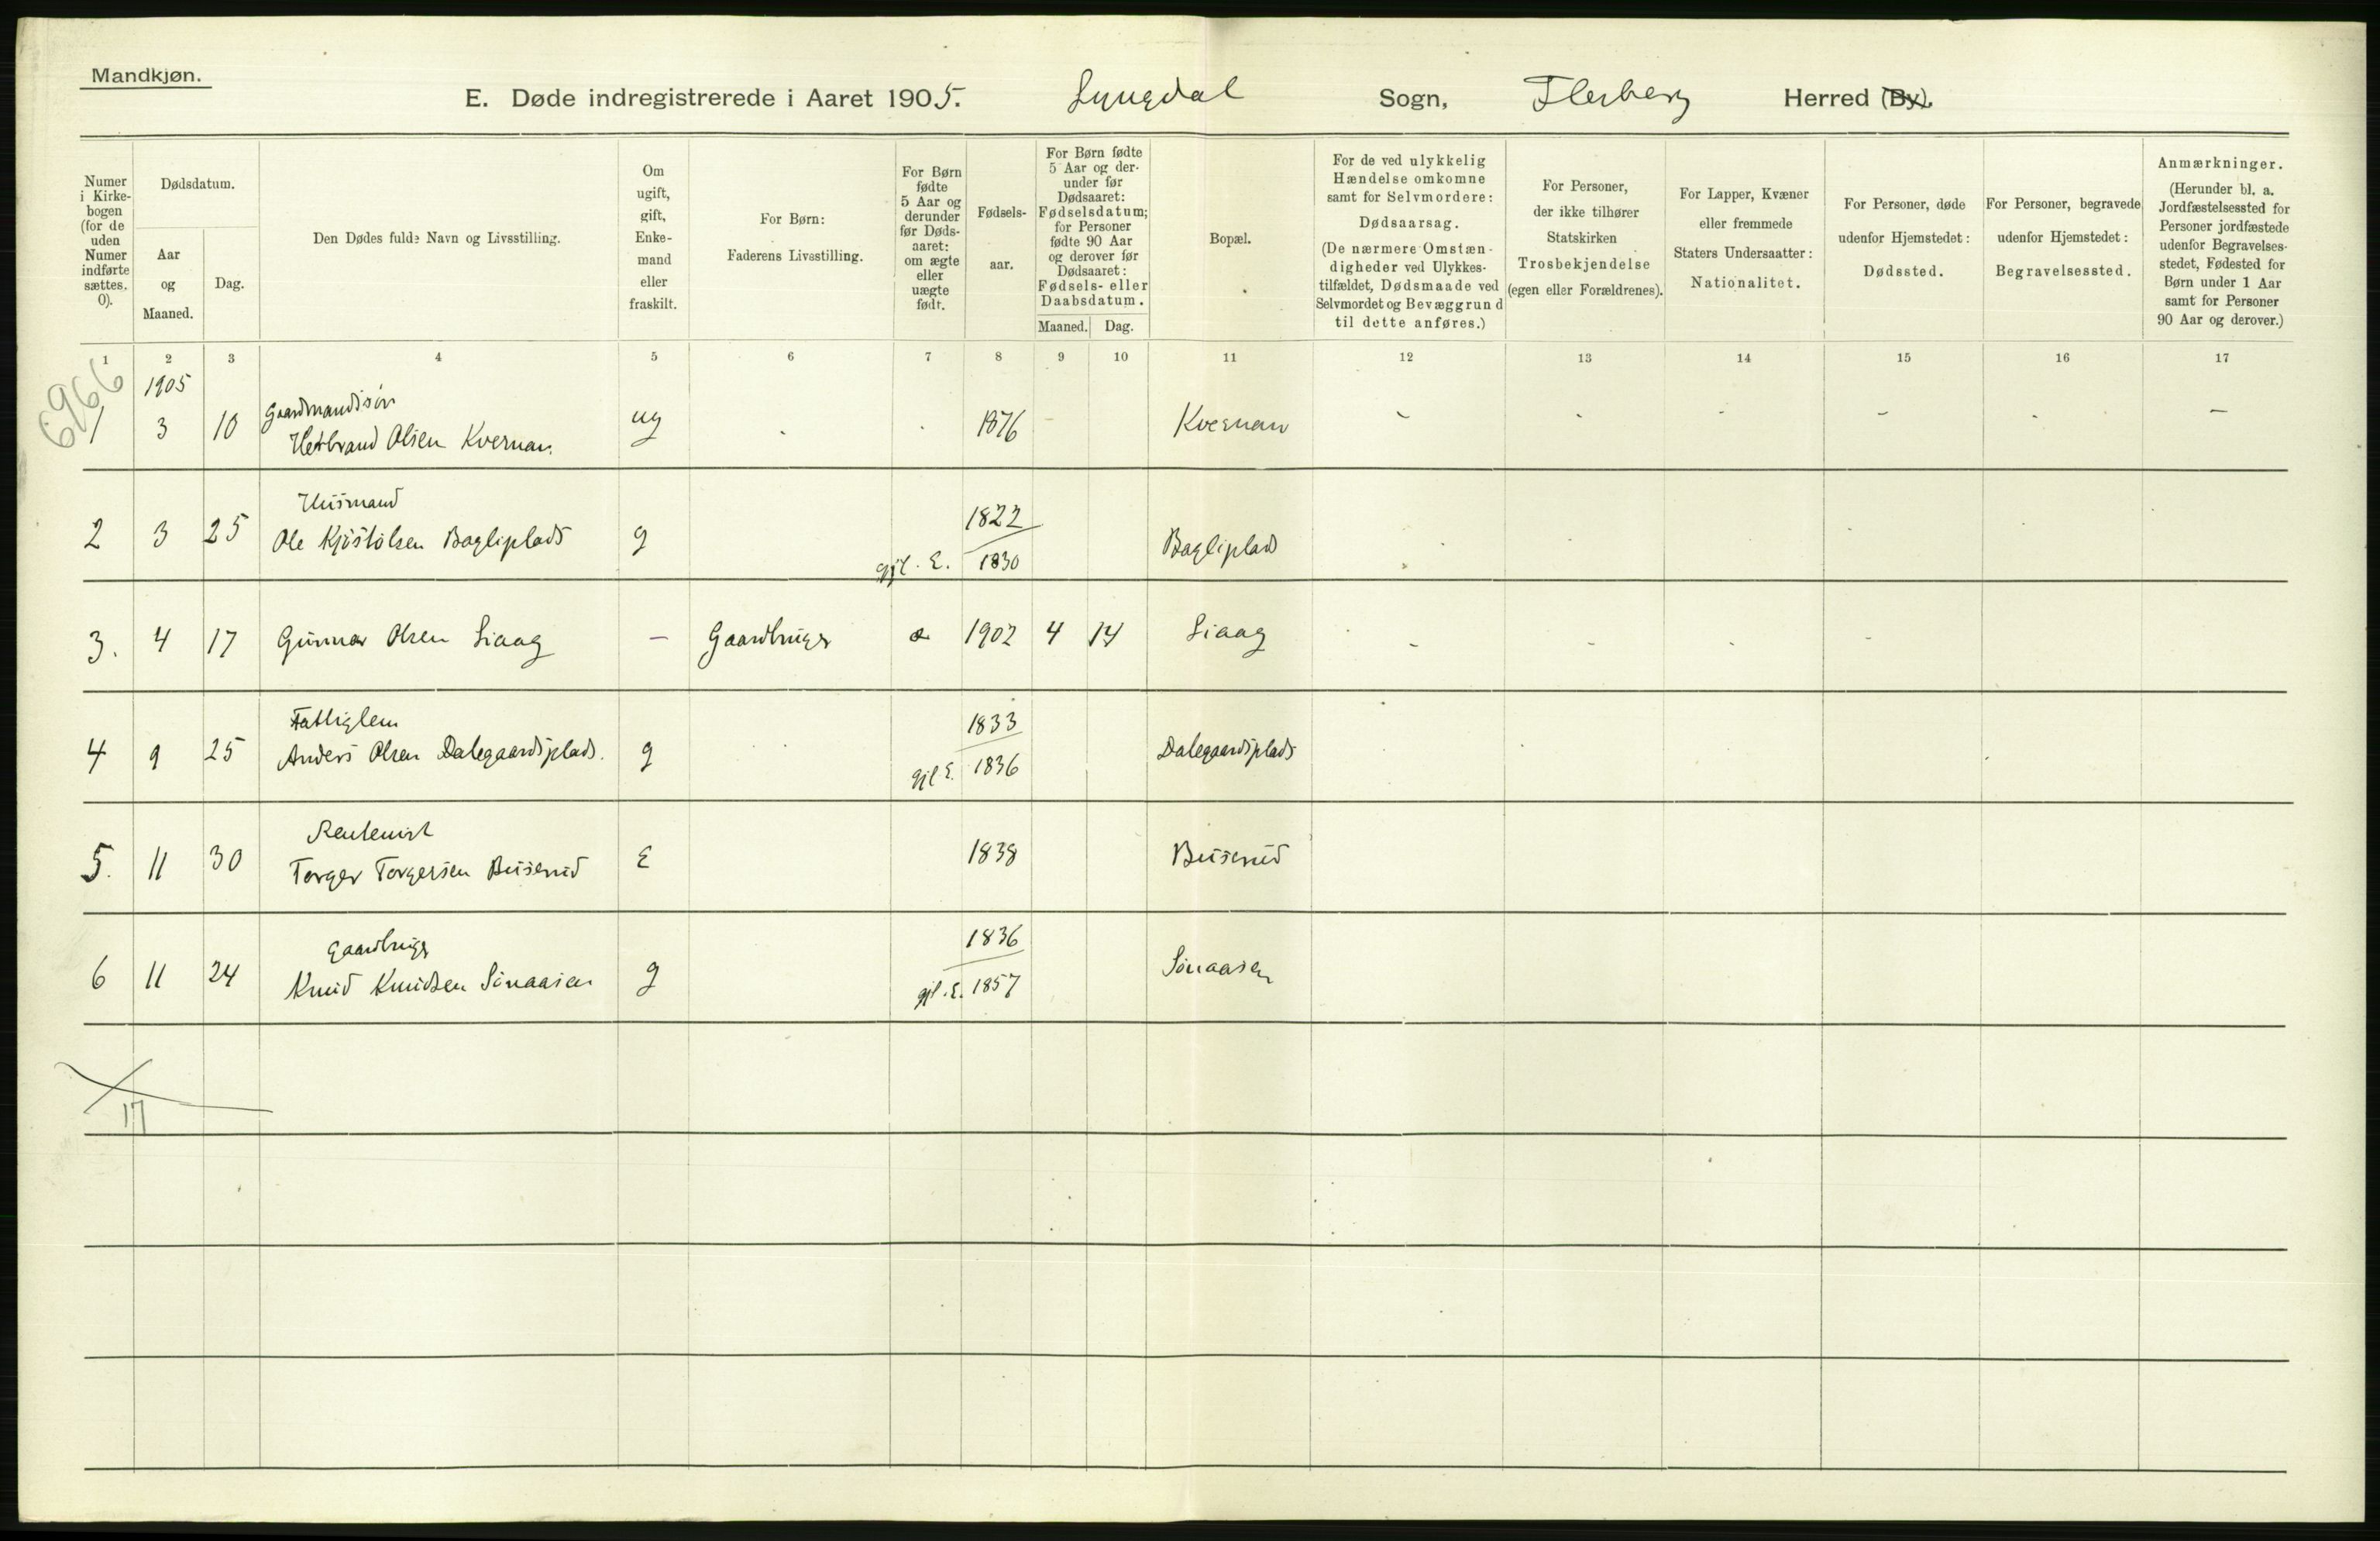 Mandkjøn.
E. Døde indregistrerede i Aaret 1905. Lyngdal Sogn, Flesberg Herred (By).
Numer i Kirkebogen (for de uden Numer indførte sættes. 0).
Dødsdatum.
Aar og Maaned.
Dag.
Den Dødes fulde Navn og Livsstilling.
Om ugift, gift, Enkemand eller fraskilt.
For Børn: Faderens Livsstilling.
For Børn fødte 5 Aar og derunder før Dødsaaret: om ægte eller uægte født.
Fødselsaar.
For Børn fødte 5 Aar og derunder før Dødsaaret: Fødselsdatum; for Personer fødte 90 Aar og derover før Dødsaaret: Fødsels- eller Daabsdatum.
Maaned. Dag.
Bopæl.
For de ved ulykkelig Hændelse omkomne samt for Selvmordere: Dødsaarsag. (De nærmere Omstændigheder ved Ulykkestilfældet, Dødsmaade ved Selvmordet og Bevæggrund til dette anføres.)
For Personer, der ikke tilhører Statskirken Trosbekjendelse (egen eller Forældrenes).
For Lapper, Kvæner eller fremmede Staters Undersaatter: Nationalitet.
For Personer, døde udenfor Hjemstedet: Dødssted.
For Personer, begravede udenfor Hjemstedet: Begravelsessted.
Anmærkninger. (Herunder bl. a. Jordfæstelsessted for Personer jordfæstede udenfor Begravelsesstedet, Fødested for Børn under 1 Aar samt for Personer 90 Aar og derover.)
1 2 3 4 5 6 7 8 9 10 11 12 13 14 15 16 17
6966
1905
Gaardmandssøn
1 3 10 Herbrand Olsen Kvernan. ug - - 1876 - Kvernan - - - - - -
Husmand 1822
2 3 25 Ole Kjøstolsen Bagliplads g Bagliplads
gjl. E. 1830
3. 4 17 Gunnar Olsen Liaag — Gaardbruger æ 1902 4 14 Liaag - - - -
Fattiglem 1833
4 9 25 Anders Olsen Dalegaardsplads. g Dalegaardsplads
gjl E. 1836
Rentenist
5. 11 30 Torger Torgersen Buserud E 1838 Buserud
Gaardbruger 1836
6 11 24 Knud Knudsen Sønaasen g Sønaasen
gjl. E. 1857
17